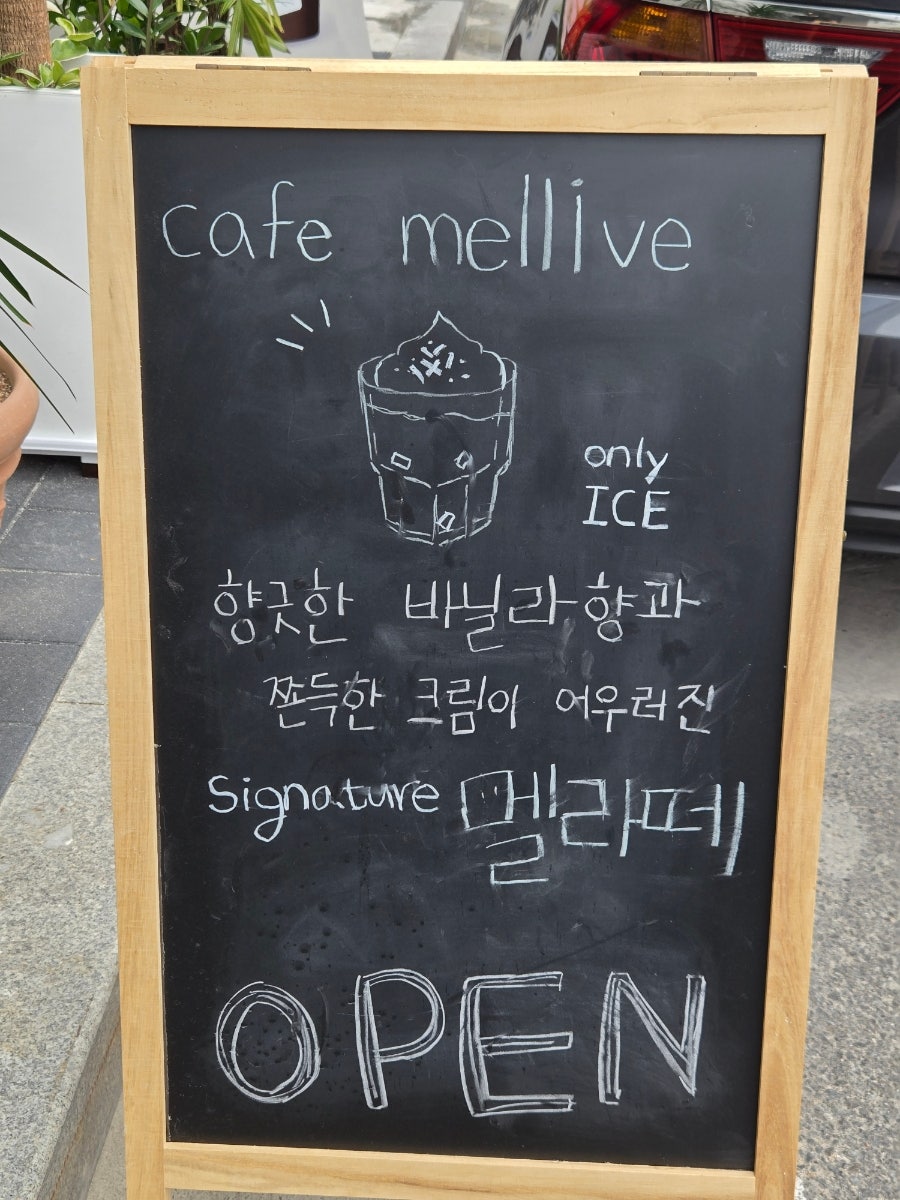 cafe mellive
only
ICE
향긋한 바닐라향과
쫀득한 크림이 어우러진
Signature 멜라떼
OPEN